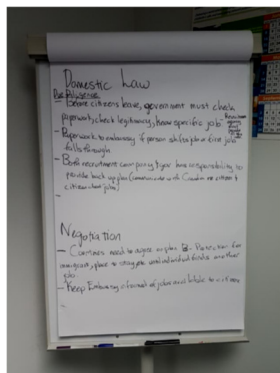 Domestic Law
- Before citizens leave, government must check
paperwork, check legitimacy, have specific job
- Paperwork to embassy if person shifts jobs or first job
falls through
- Both recruitment company & gov have responsibility to
provide back up plan (communicate with citizen &
citizen about jobs)
Negotiation
- Countries need to agree on plan B. Protection for
immigrant, place to stay until individual finds another
job
- Keep Embassy informed of jobs available to citizens
-